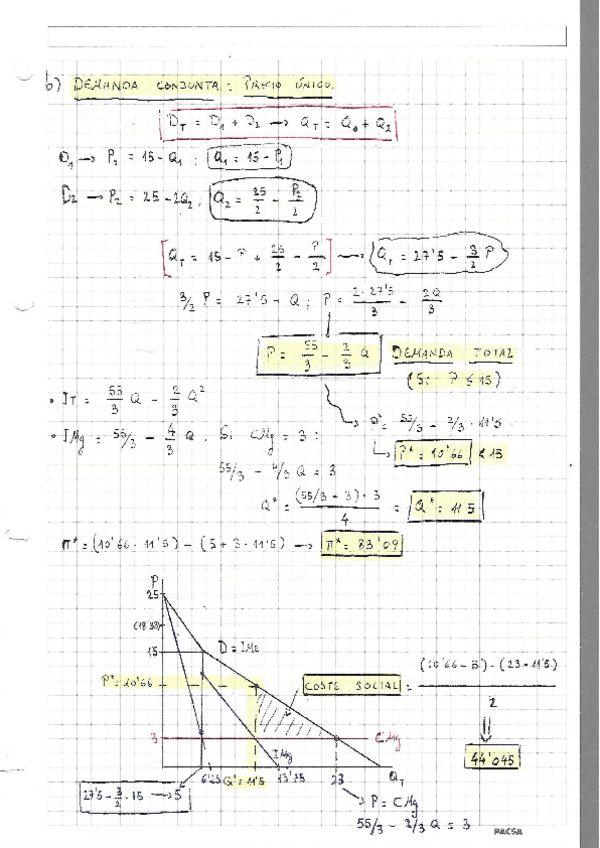 b) DEMANDA CONJUNTA: PRECIO ÚNICO.
D_T = D_1 + D_2 → Q_T = Q_1 + Q_2
D_1 → P_1 = 15 - Q_1 ; Q_1 = 15 - P_1
D_2 → P_2 = 25 - 2Q_2 ; Q_2 = 25/2 - P_2/2
[Q_T = 15 - P + 25/2 - P/2] → Q_T = 27'5 - 3/2 P
3/2 P = 27'5 - Q ; P = 2·27'5/3 - 2Q/3
P = 55/3 - 2/3 Q DEMANDA TOTAL
(Si P ≤ 15)
• IT = 55/3 Q - 2/3 Q²
P* = 55/3 - 2/3 · 11'5
• IMg = 55/3 - 4/3 Q. Si CMg = 3 :
P* = 10'66 < 15
55/3 - 4/3 Q = 3
Q* = (55/3 - 3) · 3 / 4 = Q* = 11'5
π* = (10'66 · 11'5) - (5 + 3 · 11'5) → π* = 83'09
P
25
(18'33)
15
D = IMe
P* = 10'66
COSTE SOCIAL = (10'66 - 3) · (23 - 11'5) / 2
44'045
3
CMg
IMg
6'25 Q* = 11'5 13'75 23 Q_T
27'5 - 3/2 · 15 → 5
P = CMg
55/3 - 2/3 Q = 3
PACSA